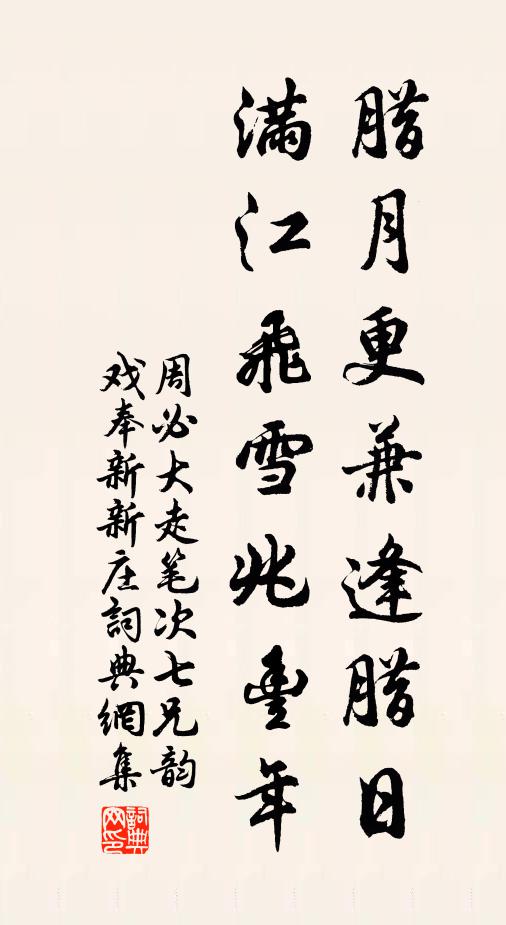 腊月更兼逢腊日
满江飛雪兆豊年
周必大走笔次七兄韵
戏奉新新庄詞典網集
詞典
网印